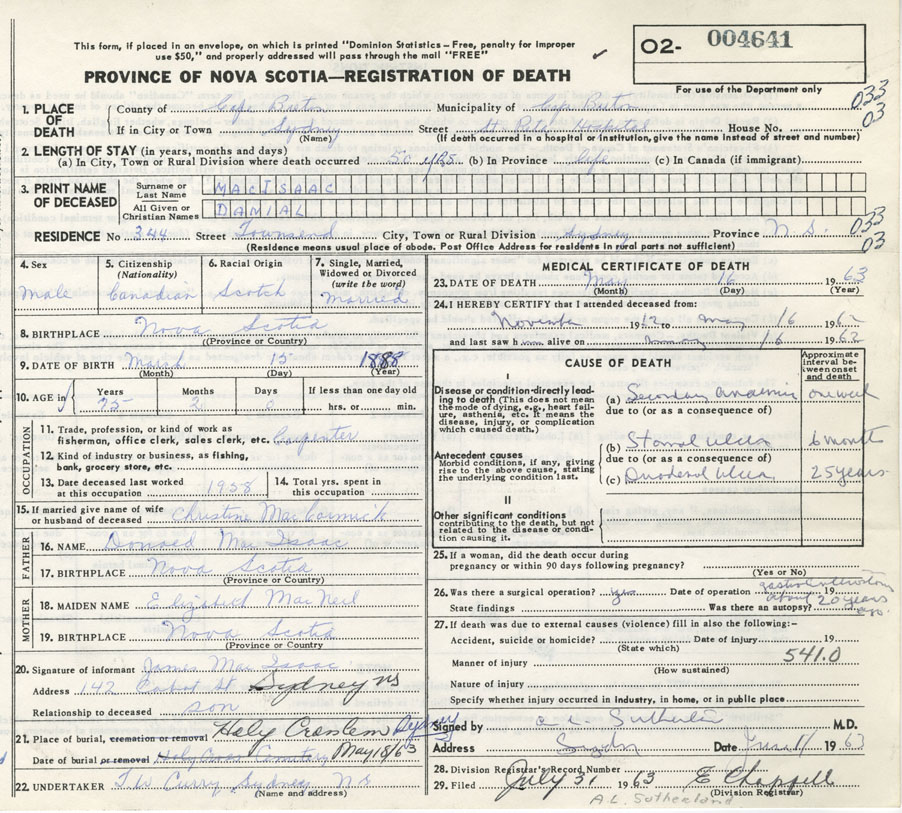 This form, if placed in an envelope, on which is printed "Dominion Statistics – Free, penalty for improper
use $50," and properly addressed will pass through the mail "FREE"
O2- 004641
PROVINCE OF NOVA SCOTIA—REGISTRATION OF DEATH
For use of the Department only
1. PLACE OF DEATH County of Cape Breton Municipality of Cape Breton 033
If in City or Town Sydney Street St Rita Hospital House No. 03
(Name) (If death occurred in hospital or institution, give the name instead of street and number)
2. LENGTH OF STAY (in years, months and days)
(a) In City, Town or Rural Division where death occurred 50 yrs (b) In Province Life (c) In Canada (if immigrant)
3. PRINT NAME OF DECEASED Surname or Last Name MACISAAC
All Given or Christian Names DANIAL
RESIDENCE No 344 Street Townsend City, Town or Rural Division Sydney Province N S. 033
03
(Residence means usual place of abode. Post Office Address for residents in rural parts not sufficient)
4. Sex Male
5. Citizenship (Nationality) Canadian
6. Racial Origin Scotch
7. Single, Married, Widowed or Divorced (write the word) Married
8. BIRTHPLACE Nova Scotia
(Province or Country)
9. DATE OF BIRTH March 15 1888
(Month) (Day) (Year)
10. AGE in Years 75 Months 2 Days If less than one day old
hrs. or min.
OCCUPATION
11. Trade, profession, or kind of work as
fisherman, office clerk, sales clerk, etc. Carpenter
12. Kind of industry or business, as fishing,
bank, grocery store, etc.
13. Date deceased last worked at this occupation 1958 14. Total yrs. spent in this occupation
15. If married give name of wife or husband of deceased Christine MacCormick
FATHER
16. NAME Donald MacIsaac
17. BIRTHPLACE Nova Scotia
(Province or Country)
MOTHER
18. MAIDEN NAME Elizabeth MacNeil
19. BIRTHPLACE Nova Scotia
(Province or Country)
20. Signature of informant James MacIsaac
Address 142 Cabot St Sydney NS
Relationship to deceased son
21. Place of burial, cremation or removal Holy Cross Cem Sydney
Date of burial or removal Holy Cross Cemetery May 18/63
22. UNDERTAKER T W Curry Sydney N S
(Name and address)
MEDICAL CERTIFICATE OF DEATH
23. DATE OF DEATH May 16 1963
(Month) (Day) (Year)
24. I HEREBY CERTIFY that I attended deceased from:
1962 to May 16 1962
and last saw h alive on 16 1962
CAUSE OF DEATH
Approximate interval between onset and death
I
Disease or condition directly leading to death (This does not mean the mode of dying, e.g., heart failure, asthenia, etc. It means the disease, injury, or complication which caused death.)
(a) Secondary anaemia one week
due to (or as a consequence of)
Antecedent causes
Morbid conditions, if any, giving rise to the above cause, stating the underlying condition last.
(b) Stomal Ulcer 6 month
due to (or as a consequence of)
(c) Duodenal Ulcer 25 years
II
Other significant conditions
contributing to the death, but not related to the disease or condition causing it.
25. If a woman, did the death occur during
pregnancy or within 90 days following pregnancy?
(Yes or No)
26. Was there a surgical operation? yes Date of operation gastroenterostomy 19
about 20 years ago.
State findings Was there an autopsy?
27. If death was due to external causes (violence) fill in also the following:–
Accident, suicide or homicide? Date of injury 19
(State which)
541.0
Manner of injury
(How sustained)
Nature of injury
Specify whether injury occurred in industry, in home, or in public place
Signed by A. L. Sutherland M.D.
Address Sydney Date 1963
28. Division Registrar's Record Number
29. Filed July 31 1963 E Chappell
(Division Registrar)
A.L. Sutherland